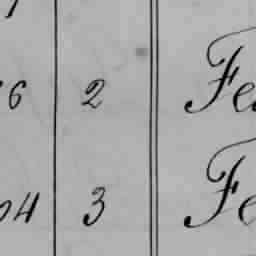 6 2 Fe
04 3 Fe